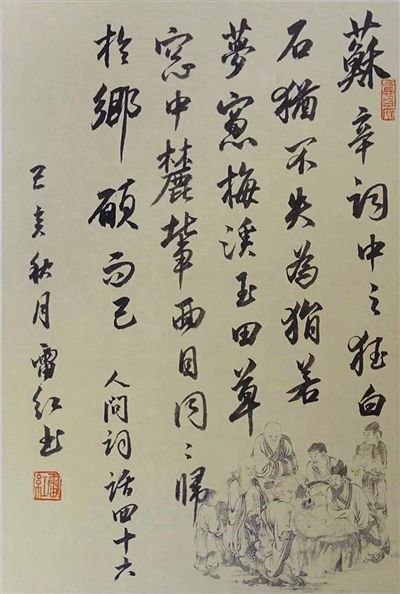 蘇辛詞中之狂白
石猶不失為狷若
夢窗梅溪玉田草
窓中麓輩面目同〻歸
於鄉願而已 人間詞話四十六
己亥秋月雪紅书